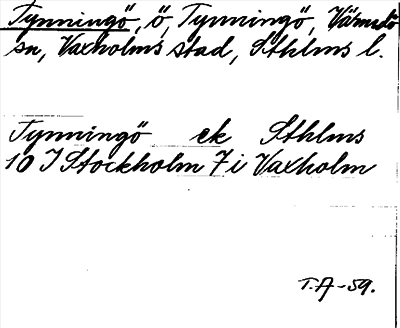 Tynningö, ö, Tynningö, Värmdö
sn, Vaxholms stad, Sthlms l.
Tynningö ek Sthlms
10 I Stockholm 7 i Vaxholm
T.A-59.